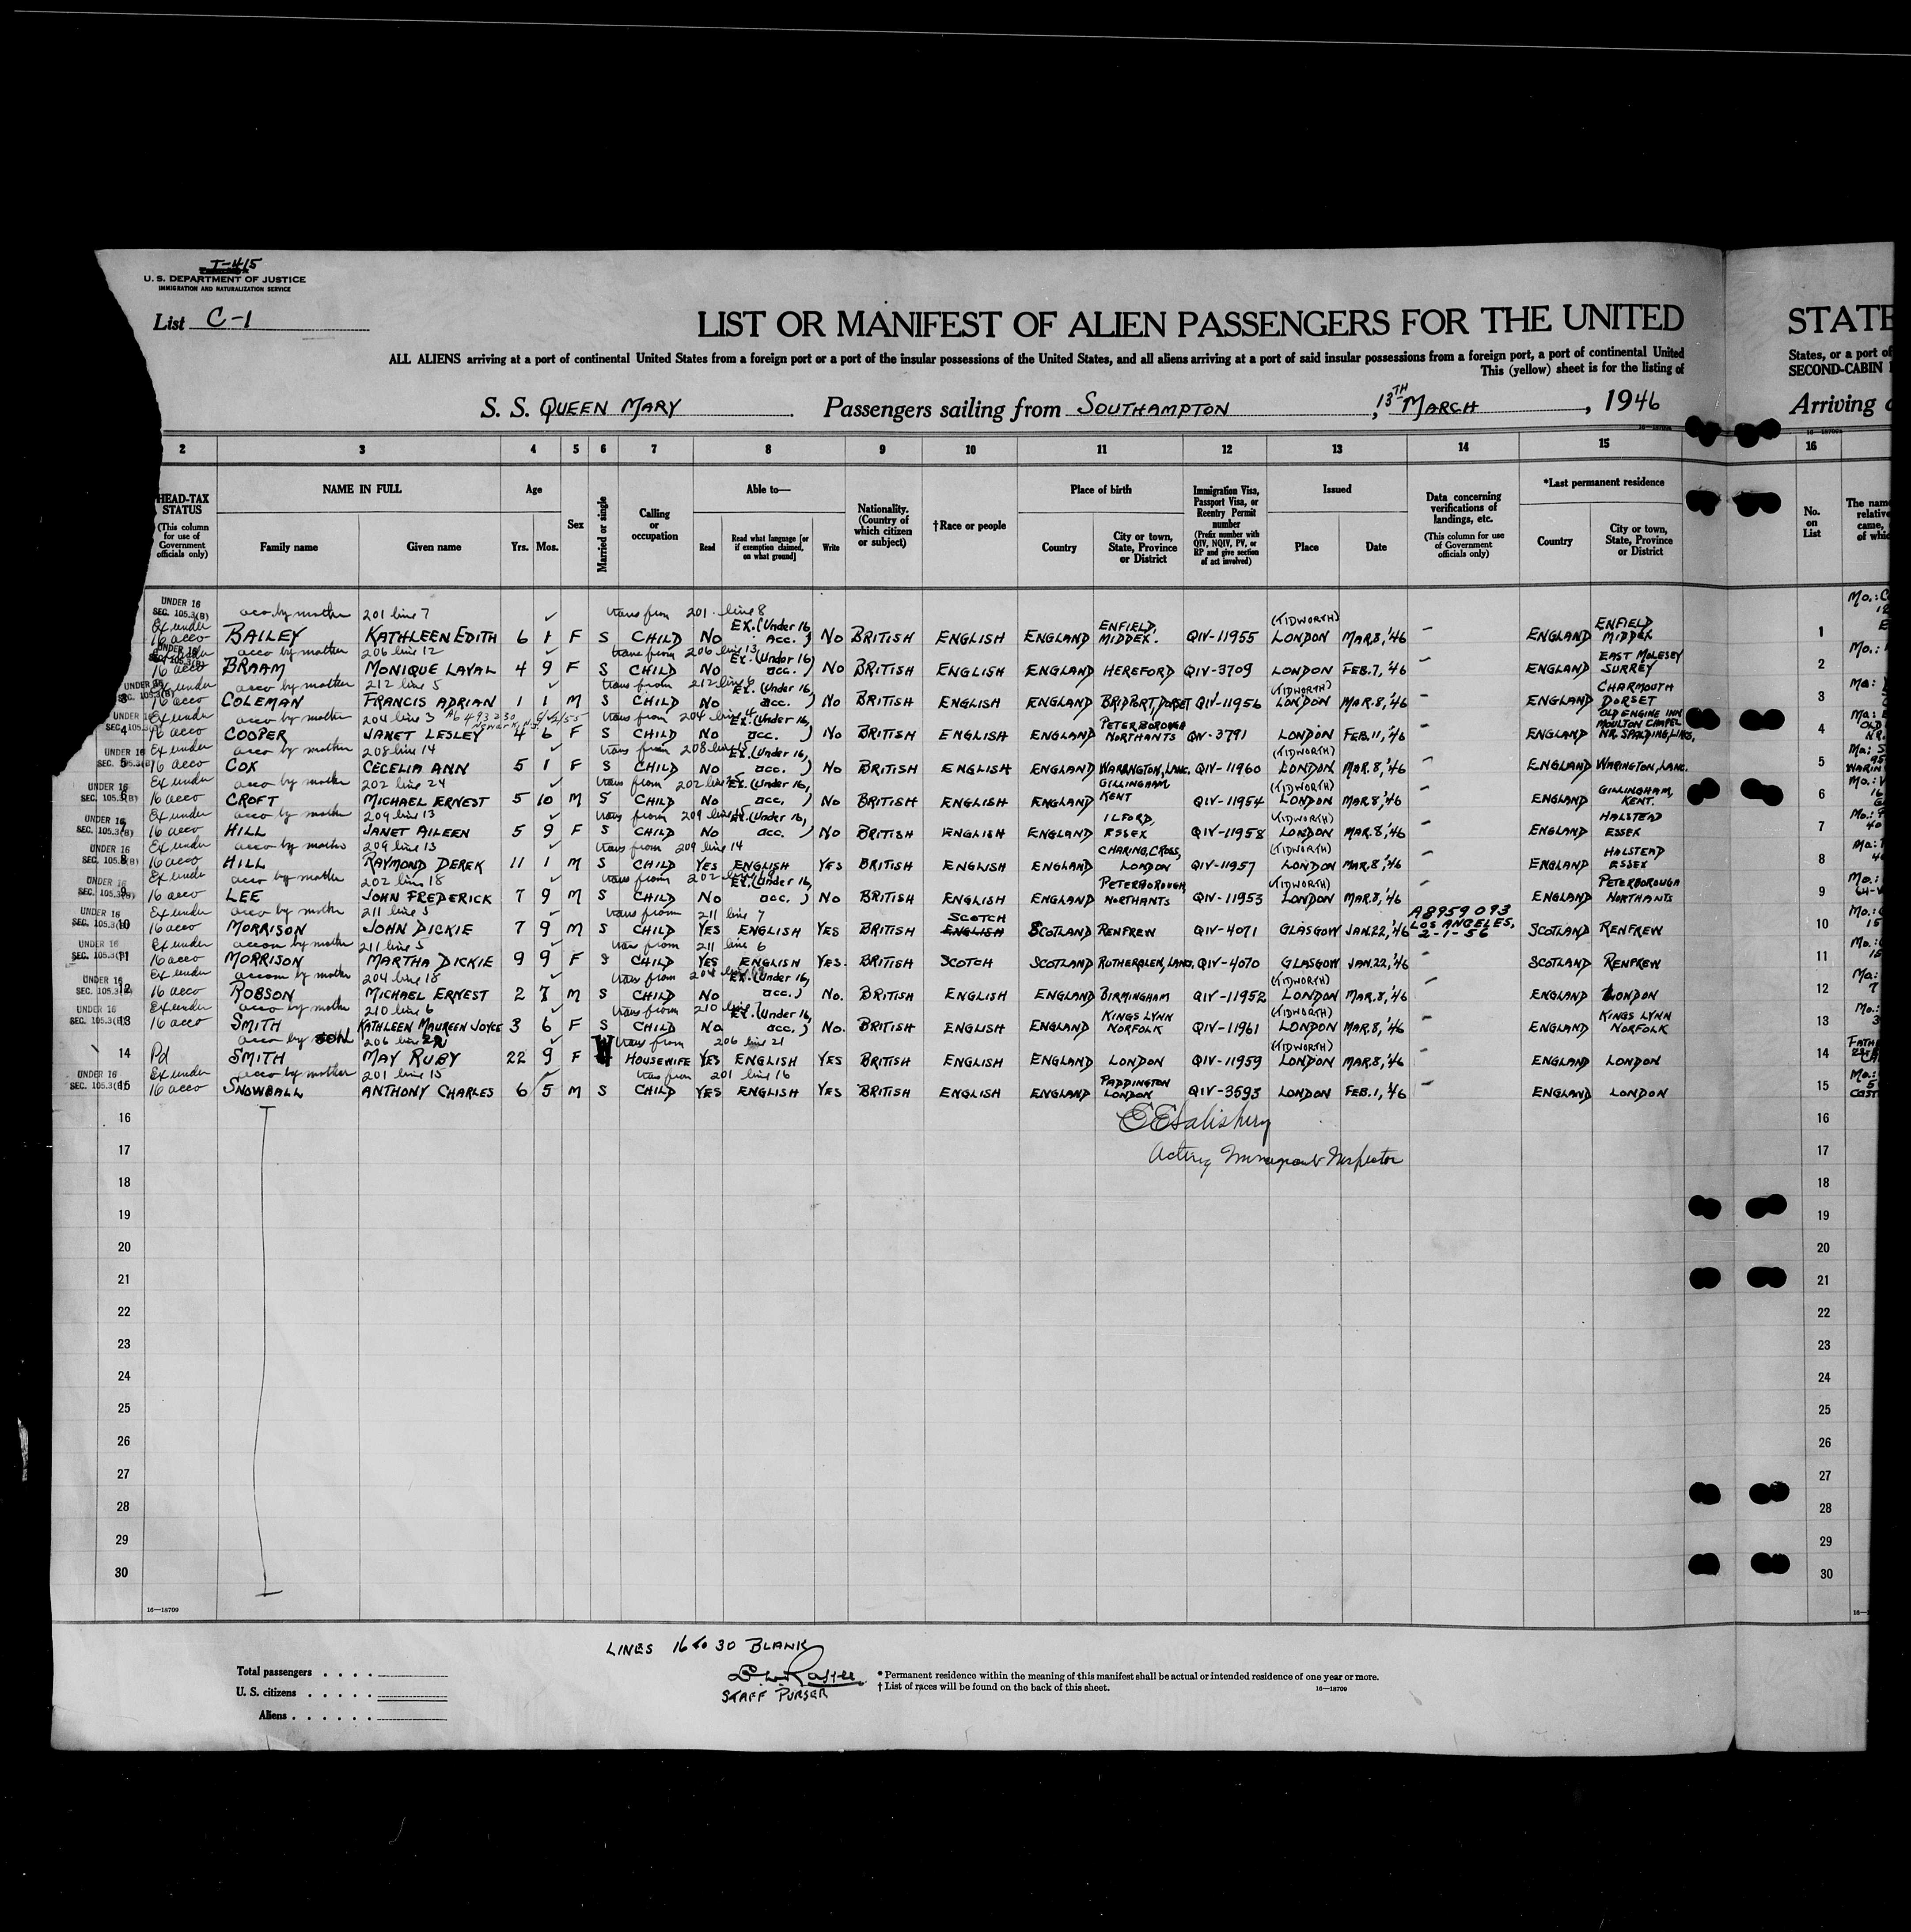 I-415
U. S. DEPARTMENT OF JUSTICE
IMMIGRATION AND NATURALIZATION SERVICE
List C-1
LIST OR MANIFEST OF ALIEN PASSENGERS FOR THE UNITED
STATE
ALL ALIENS arriving at a port of continental United States from a foreign port or a port of the insular possessions of the United States, and all aliens arriving at a port of said insular possessions from a foreign port, a port of continental United
States, or a port of
This (yellow) sheet is for the listing of
SECOND-CABIN
S. S. QUEEN MARY Passengers sailing from SOUTHAMPTON, 13TH MARCH, 1946
Arriving
2 3 4 5 6 7 8 9 10 11 12 13 14 15 16
HEAD-TAX STATUS (This column for use of Government officials only)
NAME IN FULL Family name Given name
Age Yrs. Mos.
Sex
Married or single
Calling or occupation
Able to— Read Read what language [or if exemption claimed, on what ground] Write
Nationality. (Country of which citizen or subject)
†Race or people
Place of birth Country City or town, State, Province or District
Immigration Visa, Passport Visa, or Reentry Permit number (Prefix number with QIV, NQIV, PV, or RP and give section of act involved)
Issued Place Date
Data concerning verifications of landings, etc. (This column for use of Government officials only)
*Last permanent residence Country City or town, State, Province or District
No. on List
UNDER 16 SEC. 105.3(B) acco by mother 201 line 7 trans from 201 line 8
Ex under 16 acco BAILEY KATHLEEN EDITH 6 1 F S CHILD NO EX. (Under 16 Acc.) NO BRITISH ENGLISH ENGLAND ENFIELD, MIDDEX. QIV-11955 (TIDWORTH) LONDON MAR.8,'46 – ENGLAND ENFIELD MIDDEX 1
UNDER 16 SEC. 105.3(B) acco by mother 206 line 12 trans from 206 line 13
16 acco BRAAM MONIQUE LAVAL 4 9 F S CHILD NO Ex. (Under 16) acc. NO BRITISH ENGLISH ENGLAND HEREFORD QIV-3709 LONDON FEB.7,'46 – ENGLAND EAST MOLESEY SURREY 2
UNDER 16 SEC. 105.3(B) Ex under acco by mother 212 line 5 trans from 212 line 6
3 16 acco COLEMAN FRANCIS ADRIAN 1 1 M S CHILD NO Ex. (Under 16, acc.) NO BRITISH ENGLISH ENGLAND BRIDPORT, DORSET QIV-11956 (TIDWORTH) LONDON MAR.8,'46 – ENGLAND CHARMOUTH DORSET 3
UNDER 16 SEC. 105.3 Ex under acco by mother 204 line 3 trans from 204 line 4
4 16 acco COOPER JANET LESLEY 4 6 F S CHILD NO Ex. (Under 16, acc.) NO BRITISH ENGLISH ENGLAND PETERBOROUGH NORTHANTS QIV-3791 LONDON FEB.11,'46 – ENGLAND OLD ENGINE INN MOULTON CHAPEL NR. SPALDING, LINCS, 4
UNDER 16 SEC. 105.3(B) Ex under acco by mother 208 line 14 trans from 208 line 15
5 16 acco COX CECELIA ANN 5 1 F S CHILD NO Ex. (Under 16, acc.) NO BRITISH ENGLISH ENGLAND WARRINGTON, LANC. QIV-11960 (TIDWORTH) LONDON MAR.8,'46 – ENGLAND WARINGTON, LANC. 5
UNDER 16 SEC. 105.3(B) Ex under acco by mother 202 line 24 trans from 202 line
6 16 acco CROFT MICHAEL ERNEST 5 10 M S CHILD NO Ex. (Under 16, acc.) NO BRITISH ENGLISH ENGLAND GILLINGHAM, KENT QIV-11954 (TIDWORTH) LONDON MAR.8,'46 – ENGLAND GILLINGHAM, KENT. 6
UNDER 16 SEC. 105.3(B) Ex under acco by mother 209 line 13 trans from 209 line
16 acco HILL JANET AILEEN 5 9 F S CHILD NO Ex. (Under 16, acc.) NO BRITISH ENGLISH ENGLAND ILFORD, ESSEX QIV-11958 (TIDWORTH) LONDON MAR.8,'46 – ENGLAND HALSTEAD ESSEX 7
UNDER 16 SEC. 105.3(B) Ex under acco by mother 209 line 13 trans from 209 line 14
8 16 acco HILL RAYMOND DEREK 11 1 M S CHILD YES ENGLISH YES BRITISH ENGLISH ENGLAND CHARING CROSS, LONDON QIV-11957 (TIDWORTH) LONDON MAR.8,'46 – ENGLAND HALSTEAD ESSEX 8
UNDER 16 SEC. 105.3(B) Ex under acco by mother 202 line 18 trans from 202 line
9 16 acco LEE JOHN FREDERICK 7 9 M S CHILD NO Ex. (Under 16, acc.) NO BRITISH ENGLISH ENGLAND PETERBOROUGH, NORTHANTS QIV-11953 (TIDWORTH) LONDON MAR.8,'46 – ENGLAND PETERBOROUGH NORTHANTS 9
UNDER 16 SEC. 105.3(B) Ex under acco by mother 211 line 5 trans from 211 line 7
10 16 acco MORRISON JOHN DICKIE 7 9 M S CHILD YES ENGLISH YES BRITISH SCOTCH ENGLISH SCOTLAND RENFREW QIV-4071 GLASGOW JAN.22,'46 A8959093 LOS ANGELES, 2-1-56 SCOTLAND RENFREW 10
UNDER 16 SEC. 105.3(B) Ex under accom by mother 211 line 5 trans from 211 line 6
11 16 acco MORRISON MARTHA DICKIE 9 9 F S CHILD YES ENGLISH YES. BRITISH SCOTCH SCOTLAND RUTHERGLEN, LANC. QIV-4070 GLASGOW JAN.22,'46 – SCOTLAND RENFREW 11
UNDER 16 SEC. 105.3(B) Ex under accom by mother 204 line 18 trans from 204 line 19
12 16 acco ROBSON MICHAEL ERNEST 2 7 M S CHILD NO Ex. (Under 16, acc.) NO. BRITISH ENGLISH ENGLAND BIRMINGHAM QIV-11952 (TIDWORTH) LONDON MAR.8,'46 – ENGLAND LONDON 12
UNDER 16 SEC. 105.3(B) Ex under acco by mother 210 line 6 trans from 210 line 7
13 16 acco SMITH KATHLEEN MAUREEN JOYCE 3 6 F S CHILD NO Ex. (Under 16, acc.) NO. BRITISH ENGLISH ENGLAND KINGS LYNN NORFOLK QIV-11961 (TIDWORTH) LONDON MAR.8,'46 – ENGLAND KINGS LYNN NORFOLK 13
acco by son 206 line trans from 206 line 21
14 Pd SMITH MAY RUBY 22 9 F W HOUSEWIFE YES ENGLISH YES BRITISH ENGLISH ENGLAND LONDON QIV-11959 (TIDWORTH) LONDON MAR.8,'46 – ENGLAND LONDON 14
UNDER 16 SEC. 105.3(B) Ex under acco by mother 201 line 15 trans from 201 line 16
15 16 acco SNOWBALL ANTHONY CHARLES 6 5 M S CHILD YES ENGLISH YES BRITISH ENGLISH ENGLAND PADDINGTON LONDON QIV-3593 LONDON FEB.1,'46 – ENGLAND LONDON 15
16 16
C E Salisbury
17 17
Acting Immigrant Inspector
18 18
19 19
20 20
21 21
22 22
23 23
24 24
25 25
26 26
27 27
28 28
29 29
30 30
16—18709
LINES 16 to 30 BLANK
STAFF PURSER
Total passengers . . . .
U. S. citizens . . . . .
Aliens . . . . . .
* Permanent residence within the meaning of this manifest shall be actual or intended residence of one year or more.
† List of races will be found on the back of this sheet.
16—18709